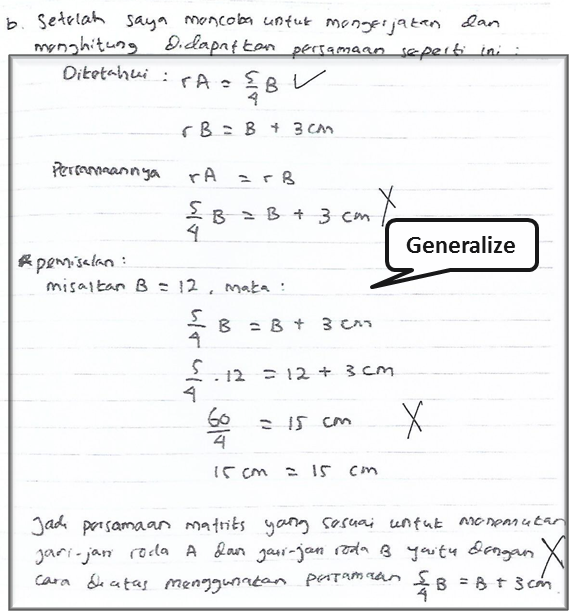 b. Setelah saya mencoba untuk mengerjakan dan
menghitung Didapatkan persamaan seperti ini :
Diketahui : rA = 5/4 B ✓
rB = B + 3 cm
Persamaannya rA = rB
5/4 B = B + 3 cm X
Generalize
pemisalan :
misalkan B = 12 , maka :
5/4 B = B + 3 cm
5/4 . 12 = 12 + 3 cm
60/4 = 15 cm X
15 cm = 15 cm
Jadi persamaan matriks yang sesuai untuk menemukan
jari-jari roda A dan jari-jari roda B yaitu dengan X
cara diatas menggunakan persamaan 5/4 B = B + 3 cm